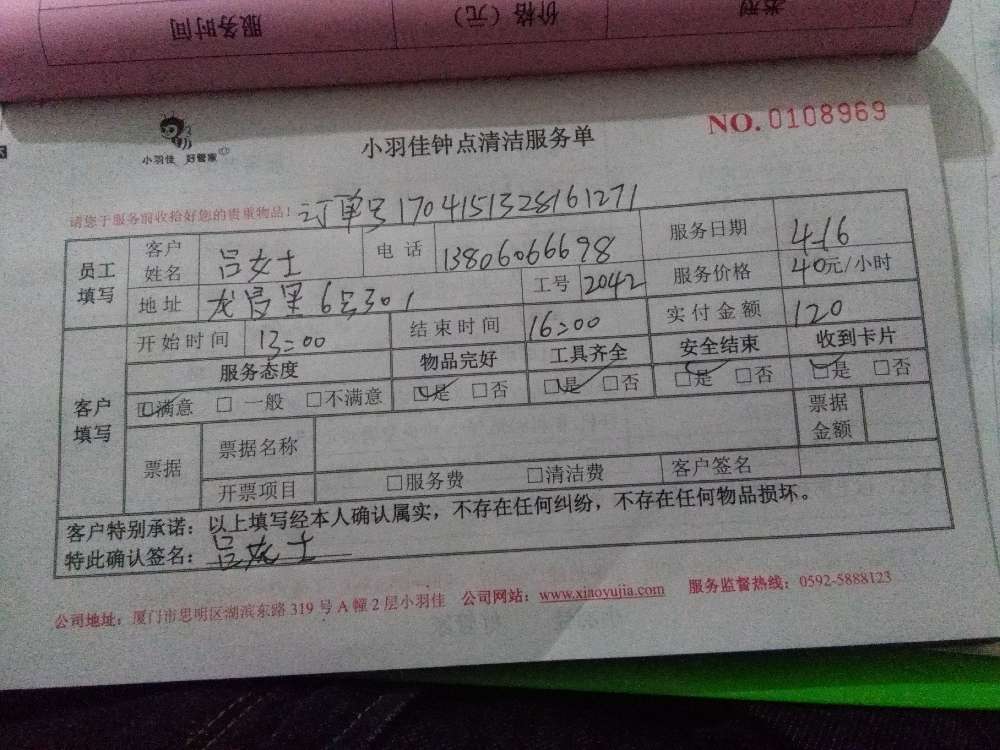 服务时间 价格（元） 类型
小羽佳 好管家
小羽佳钟点清洁服务单
NO. 0108969
请您于服务前收拾好您的贵重物品！ 订单号1704151328161271
员工填写 客户姓名 吕女士 电话 13806066698 服务日期 4-16
地址 龙昌里6号301 工号 2042 服务价格 40元/小时
开始时间 13:00 结束时间 16:00 实付金额 120
客户填写 服务态度 物品完好 工具齐全 安全结束 收到卡片
☑满意 □一般 □不满意 ☑是 □否 ☑是 □否 ☑是 □否 ☑是 □否
票据 票据名称 票据金额
开票项目 □服务费 □清洁费 客户签名
客户特别承诺：以上填写经本人确认属实，不存在任何纠纷，不存在任何物品损坏。
特此确认签名：吕女士
公司地址：厦门市思明区湖滨东路319号A幢2层小羽佳 公司网站：www.xiaoyujia.com 服务监督热线：0592-5888123